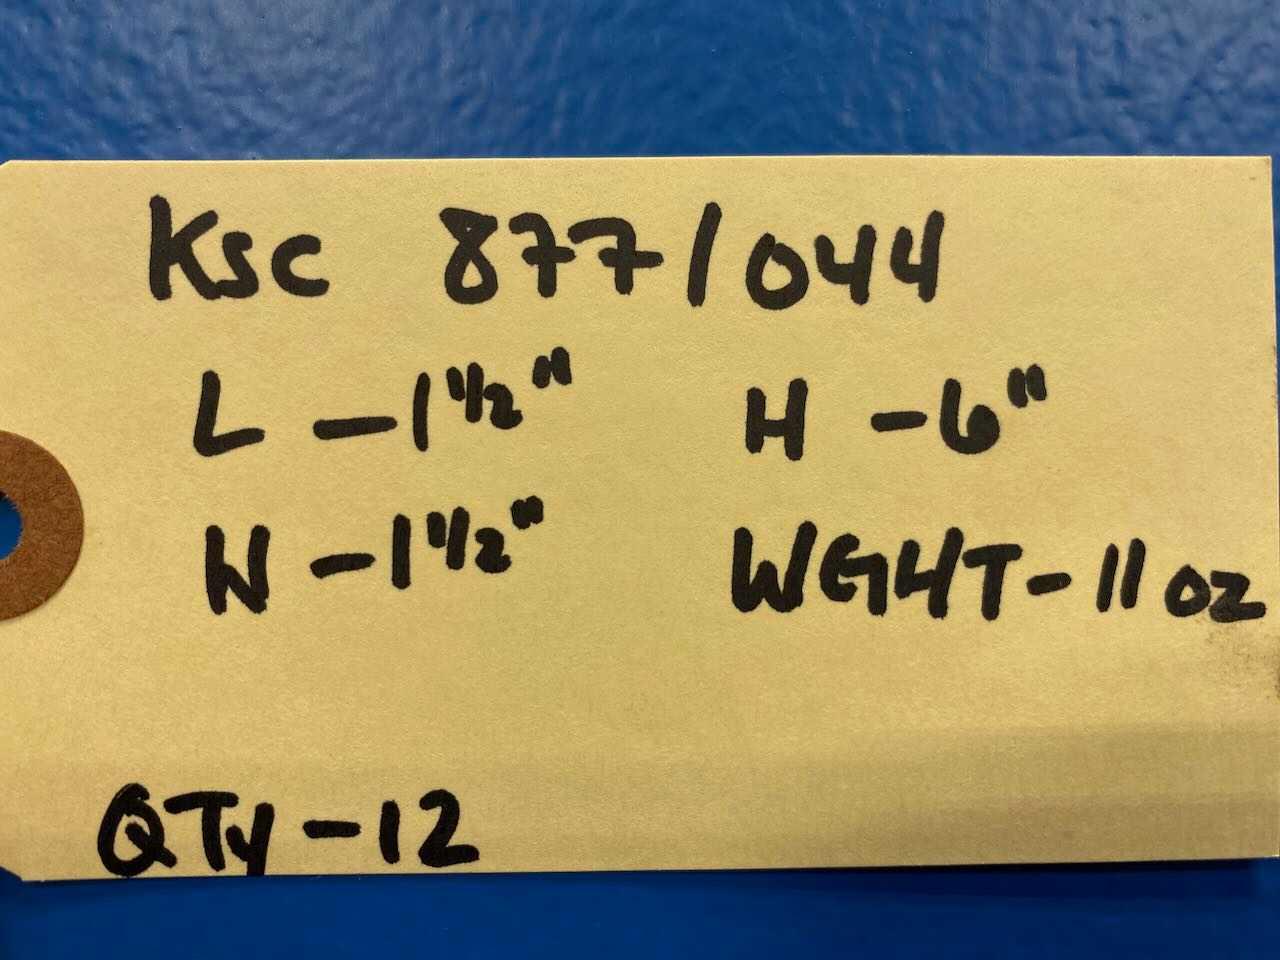 KSC 877/044
L - 1 1/2" H - 6"
W - 1 1/2" WGHT - 11 oz
QTY - 12